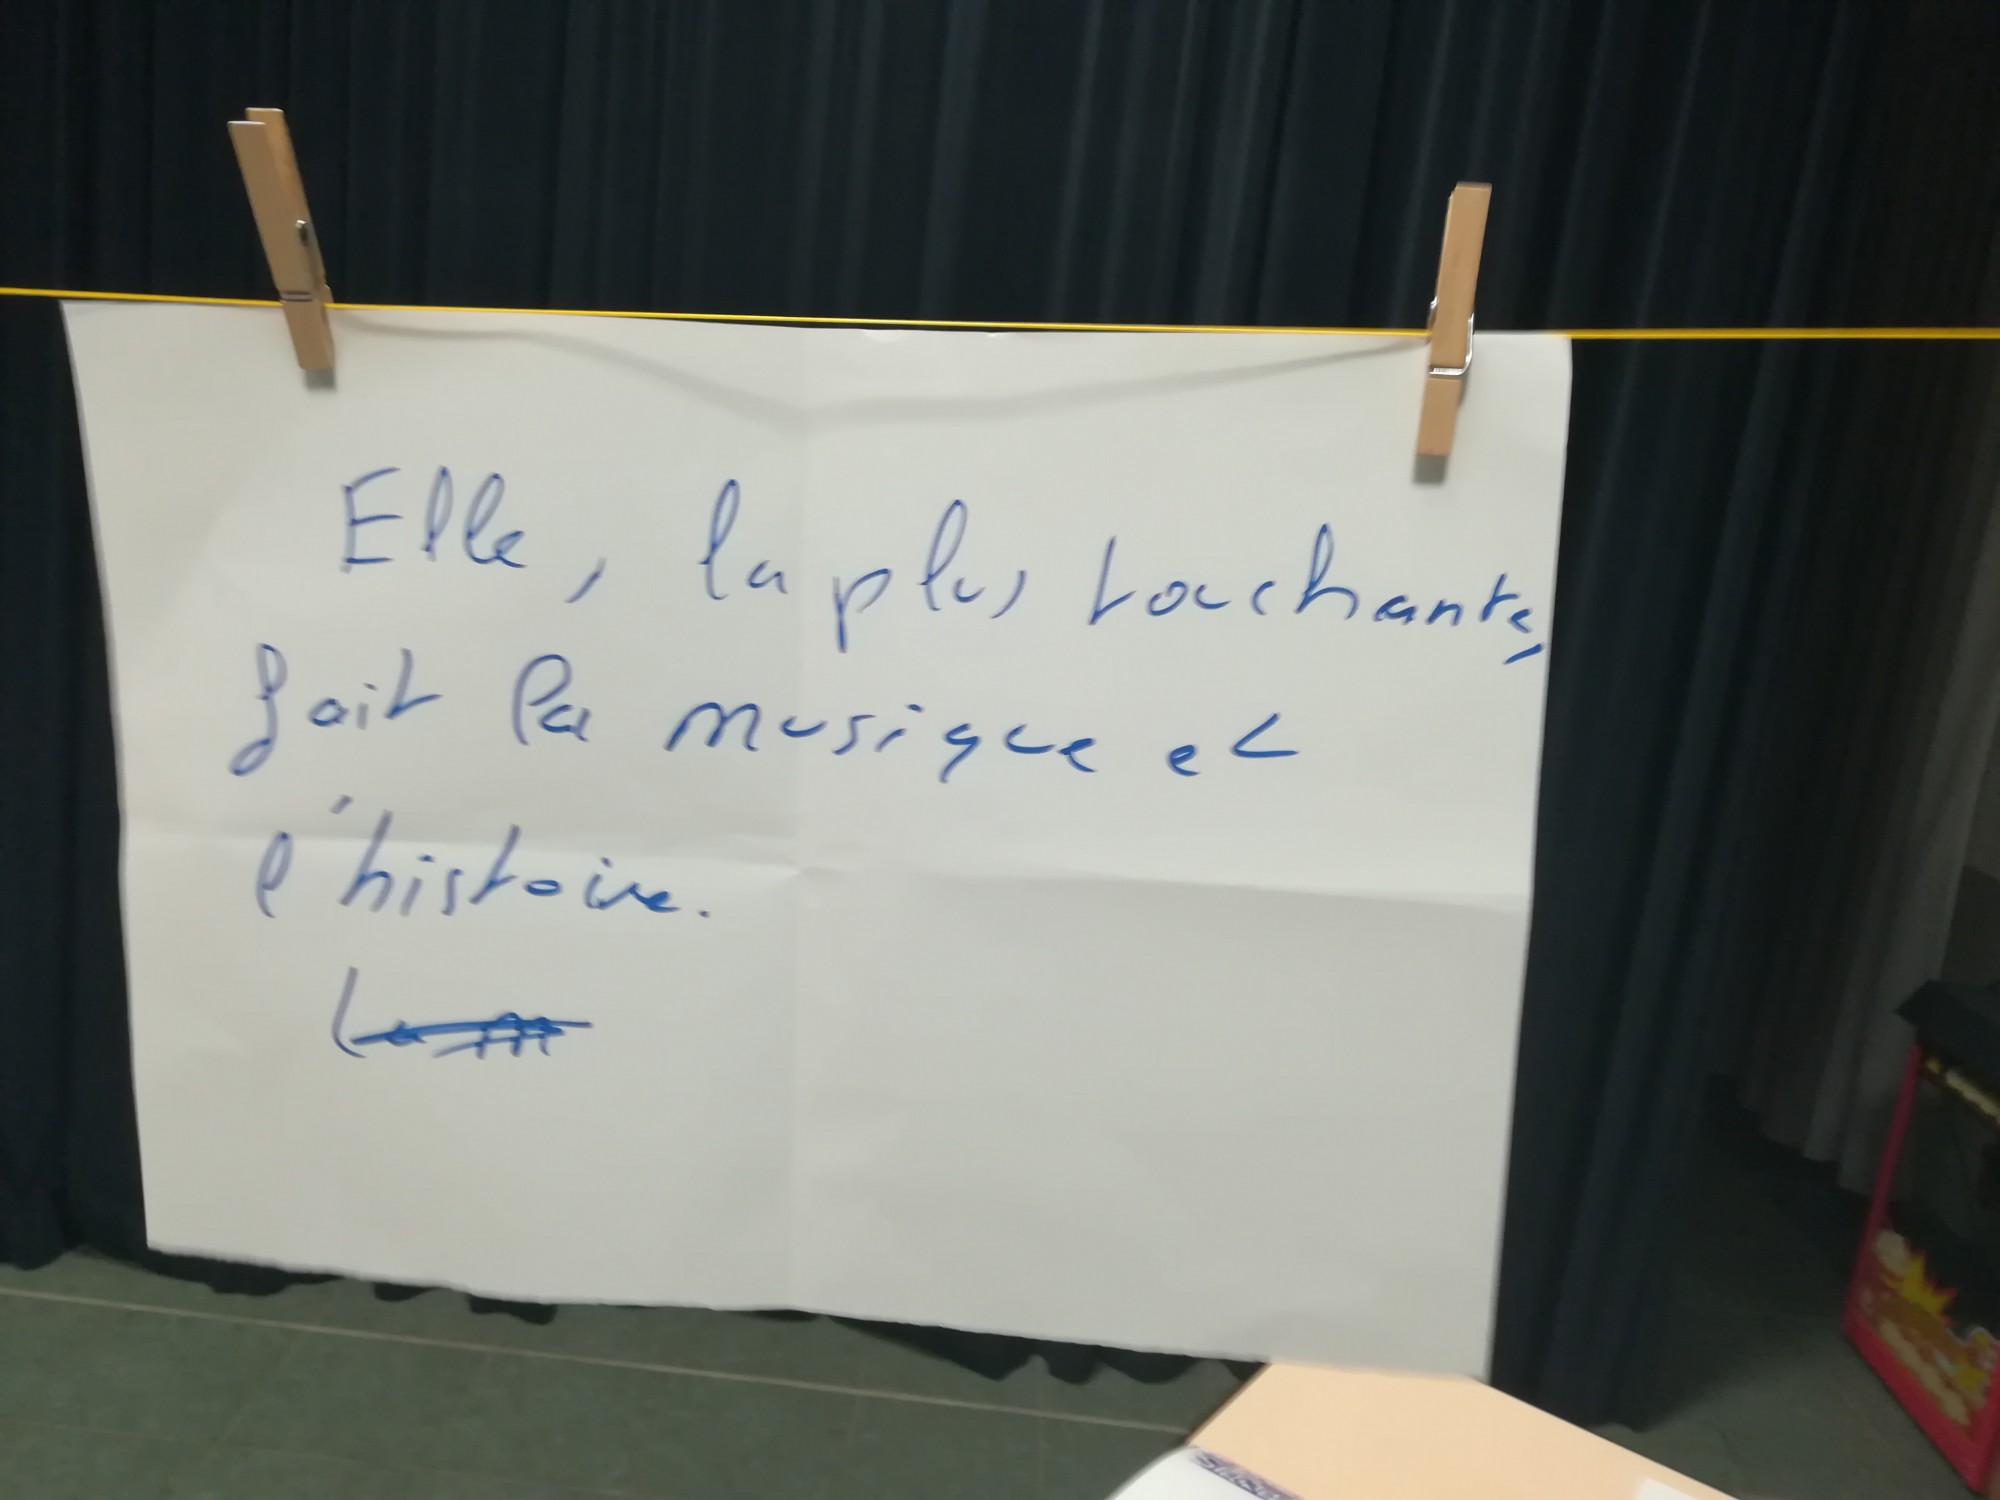 Elle, la plus touchante,
fait la musique et
l'histoire.